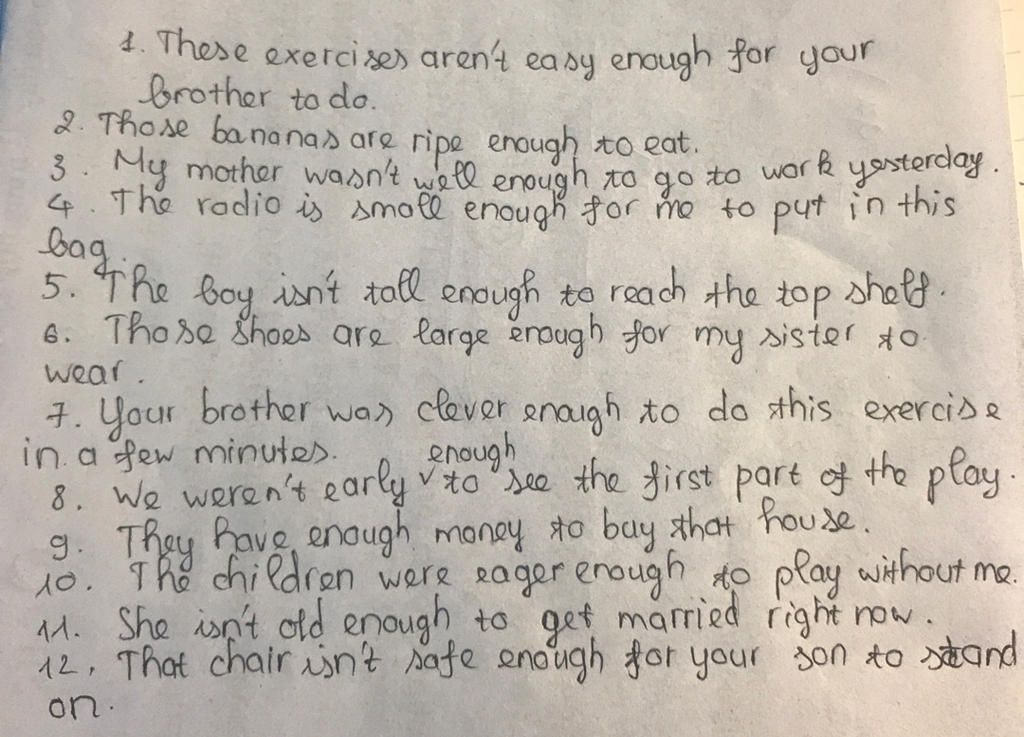 1. These exercises aren't easy enough for your
brother to do.
2. Those bananas are ripe enough to eat.
3. My mother wasn't well enough to go to work yesterday.
4. The radio is small enough for me to put in this
bag.
5. The boy isn't tall enough to reach the top shelf.
6. Those shoes are large enough for my sister to
wear.
7. Your brother was clever enough to do this exercise
in a few minutes.
8. We weren't early enough to see the first part of the play.
9. They have enough money to buy that house.
10. The children were eager enough to play without me.
11. She isn't old enough to get married right now.
12. That chair isn't safe enough for your son to stand
on.